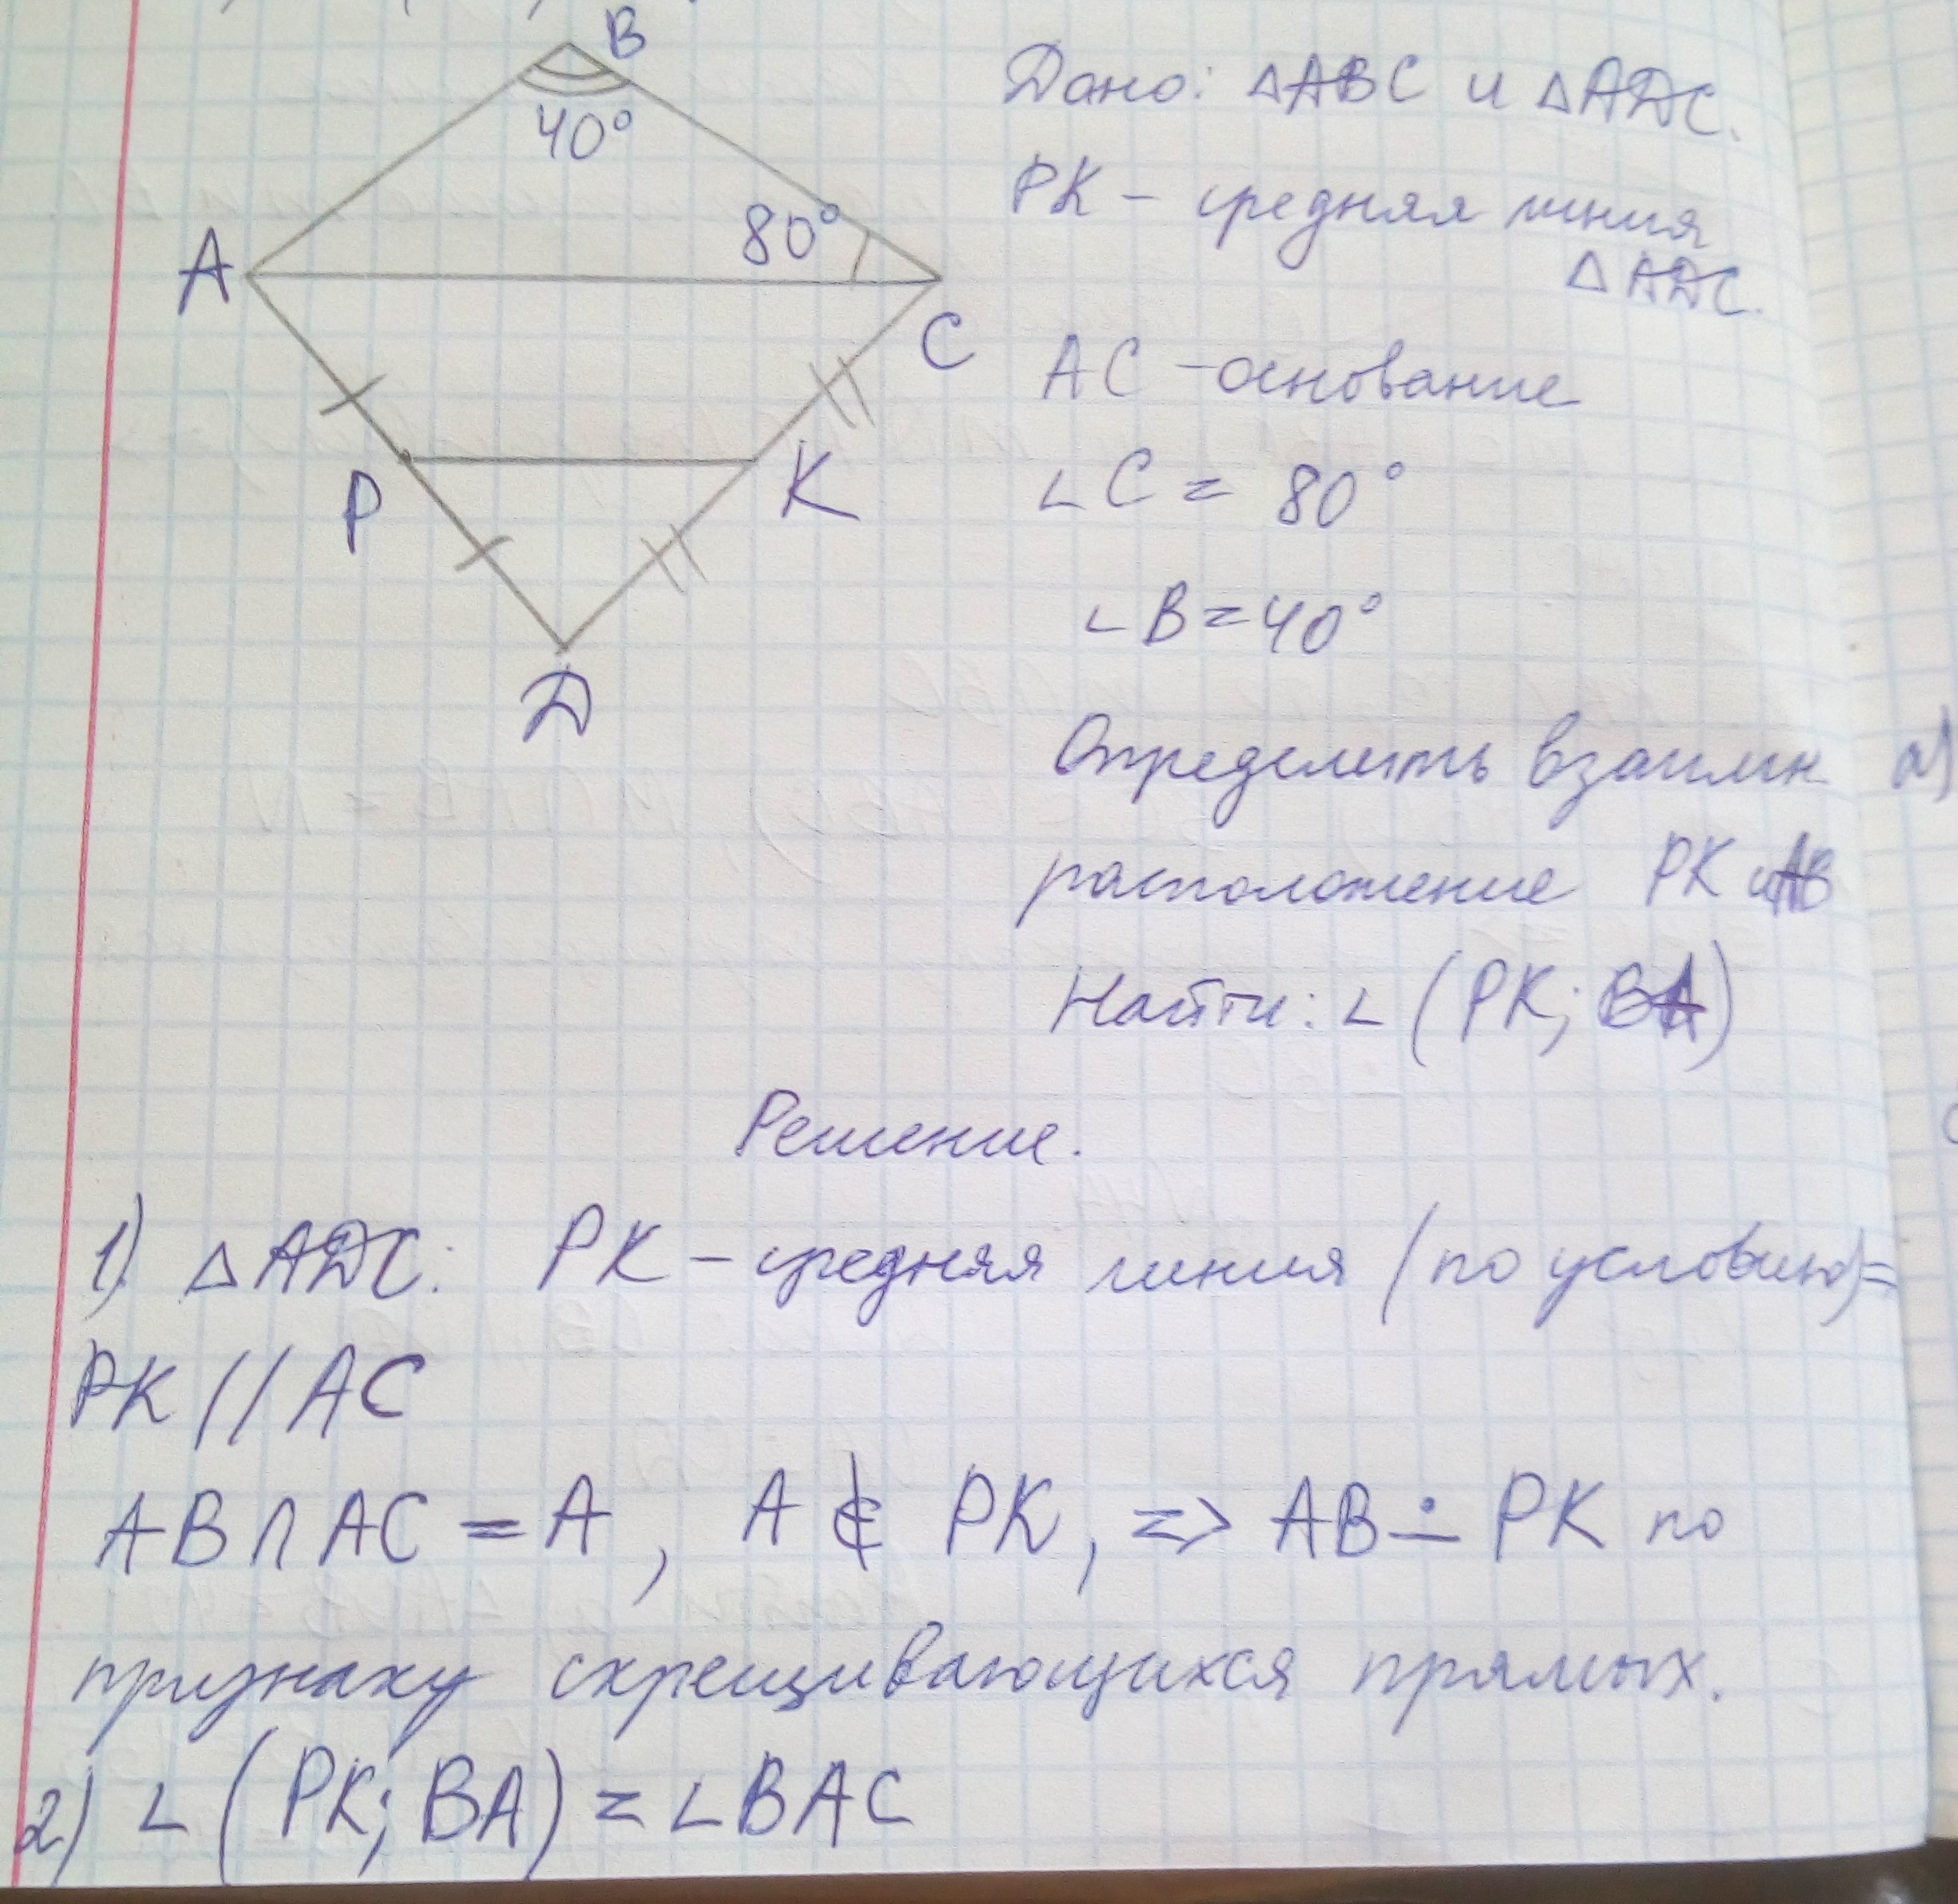 B
40°
80°
A
C
P
K
D
Дано: △ABC и △ADC.
PK – средняя линия
△ADC.
AC – основание
∠C = 80°
∠B = 40°
Определить взаимн
расположение PK и AB
Найти: ∠(PK; BA)
а)
Решение.
1) △ADC: PK – средняя линия (по условию) =
PK // AC
AB ∩ AC = A, A ∉ PK, => AB ∸ PK по
признаку скрещивающихся прямых.
2) ∠(PK; BA) = ∠BAC